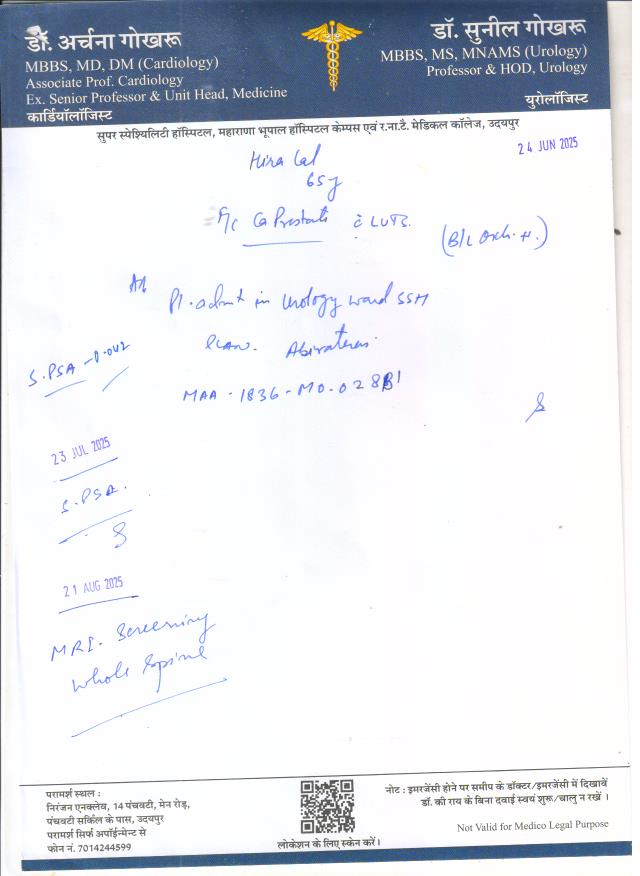 डॉ. अर्चना गोखरू
MBBS, MD, DM (Cardiology)
Associate Prof. Cardiology
Ex. Senior Professor & Unit Head, Medicine
कार्डियॉलॉजिस्ट
डॉ. सुनील गोखरू
MBBS, MS, MNAMS (Urology)
Professor & HOD, Urology
यूरोलॉजिस्ट
सुपर स्पेश्यिलिटी हॉस्पिटल, महाराणा भूपाल हॉस्पिटल केम्पस एवं र.ना.टै. मेडिकल कॉलेज, उदयपुर
24 JUN 2025
Hira Lal
65y
Ca Prostate c̄ LUTS.
(B/L Orch.
Pl. admit in Urology ward SSH
Plan.
S.PSA - 0.042
MAA - 1836 - M0 - 02881
23 JUL 2025
S.PSA.
21 AUG 2025
MRI. Screening
Whole Spine
परामर्श स्थल :
निरंजन एनक्लेव, 14 पंचवटी, मेन रोड़,
पंचवटी सर्किल के पास, उदयपुर
परामर्श सिर्फ अपॉईन्मेन्ट से
फोन नं. 7014244599
लोकेशन के लिए स्केन करें।
नोट : इमरजेंसी होने पर समीप के डॉक्टर/इमरजेंसी में दिखावें
डॉ. की राय के बिना दवाई स्वयं शुरू/चालु न रखें ।
Not Valid for Medico Legal Purpose